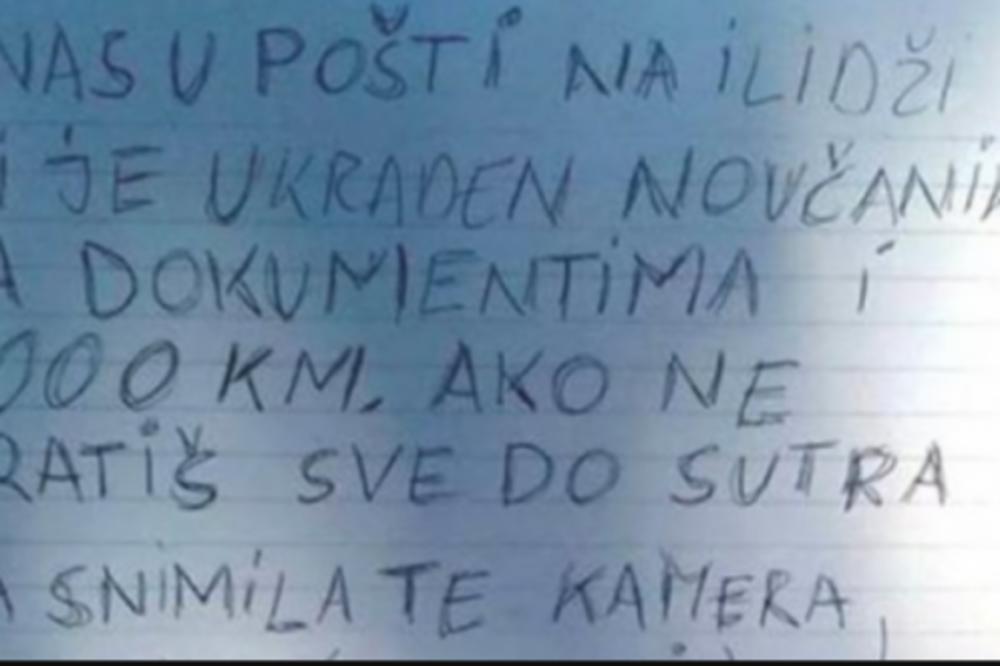 NAS U POŠTI NA ILIDŽI
JE UKRADEN NOVČANIK
A DOKUMENTIMA I
000 KM. AKO NE
RATIŠ SVE DO SUTRA
A SNIMILA TE KAMERA